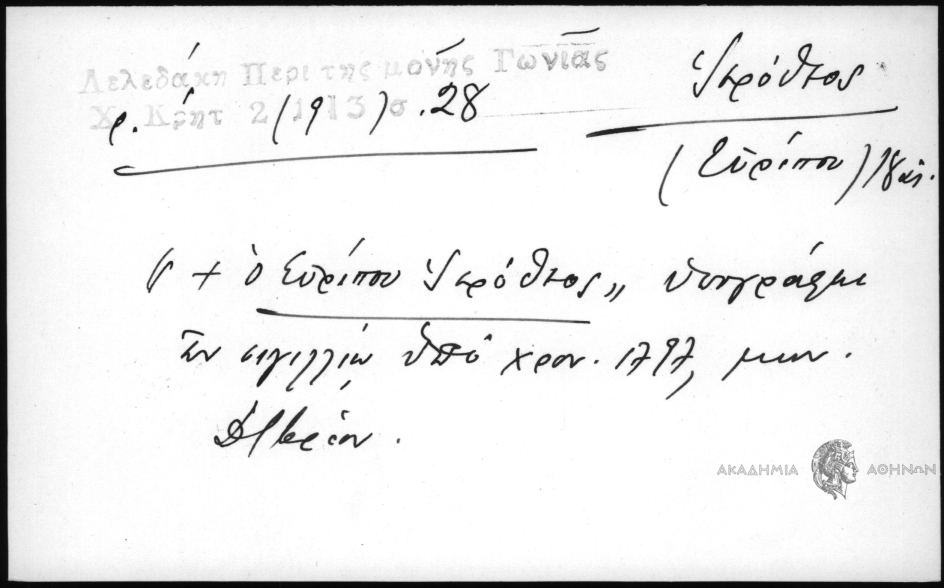 Λελεδάκη Περι της μονης Γωνιάς
Χ. Κρητ 2 (1913) σ. 28
Ἱερόθεος
(Εὐρίπου) 18 αἰ.
" + ὁ Εὐρίπου Ἱερόθεος „ ὑπογράφει
ὑπὸ χρον. 1797, μην.
ΑΚΑΔΗΜΙΑ ΑΘΗΝΩΝ